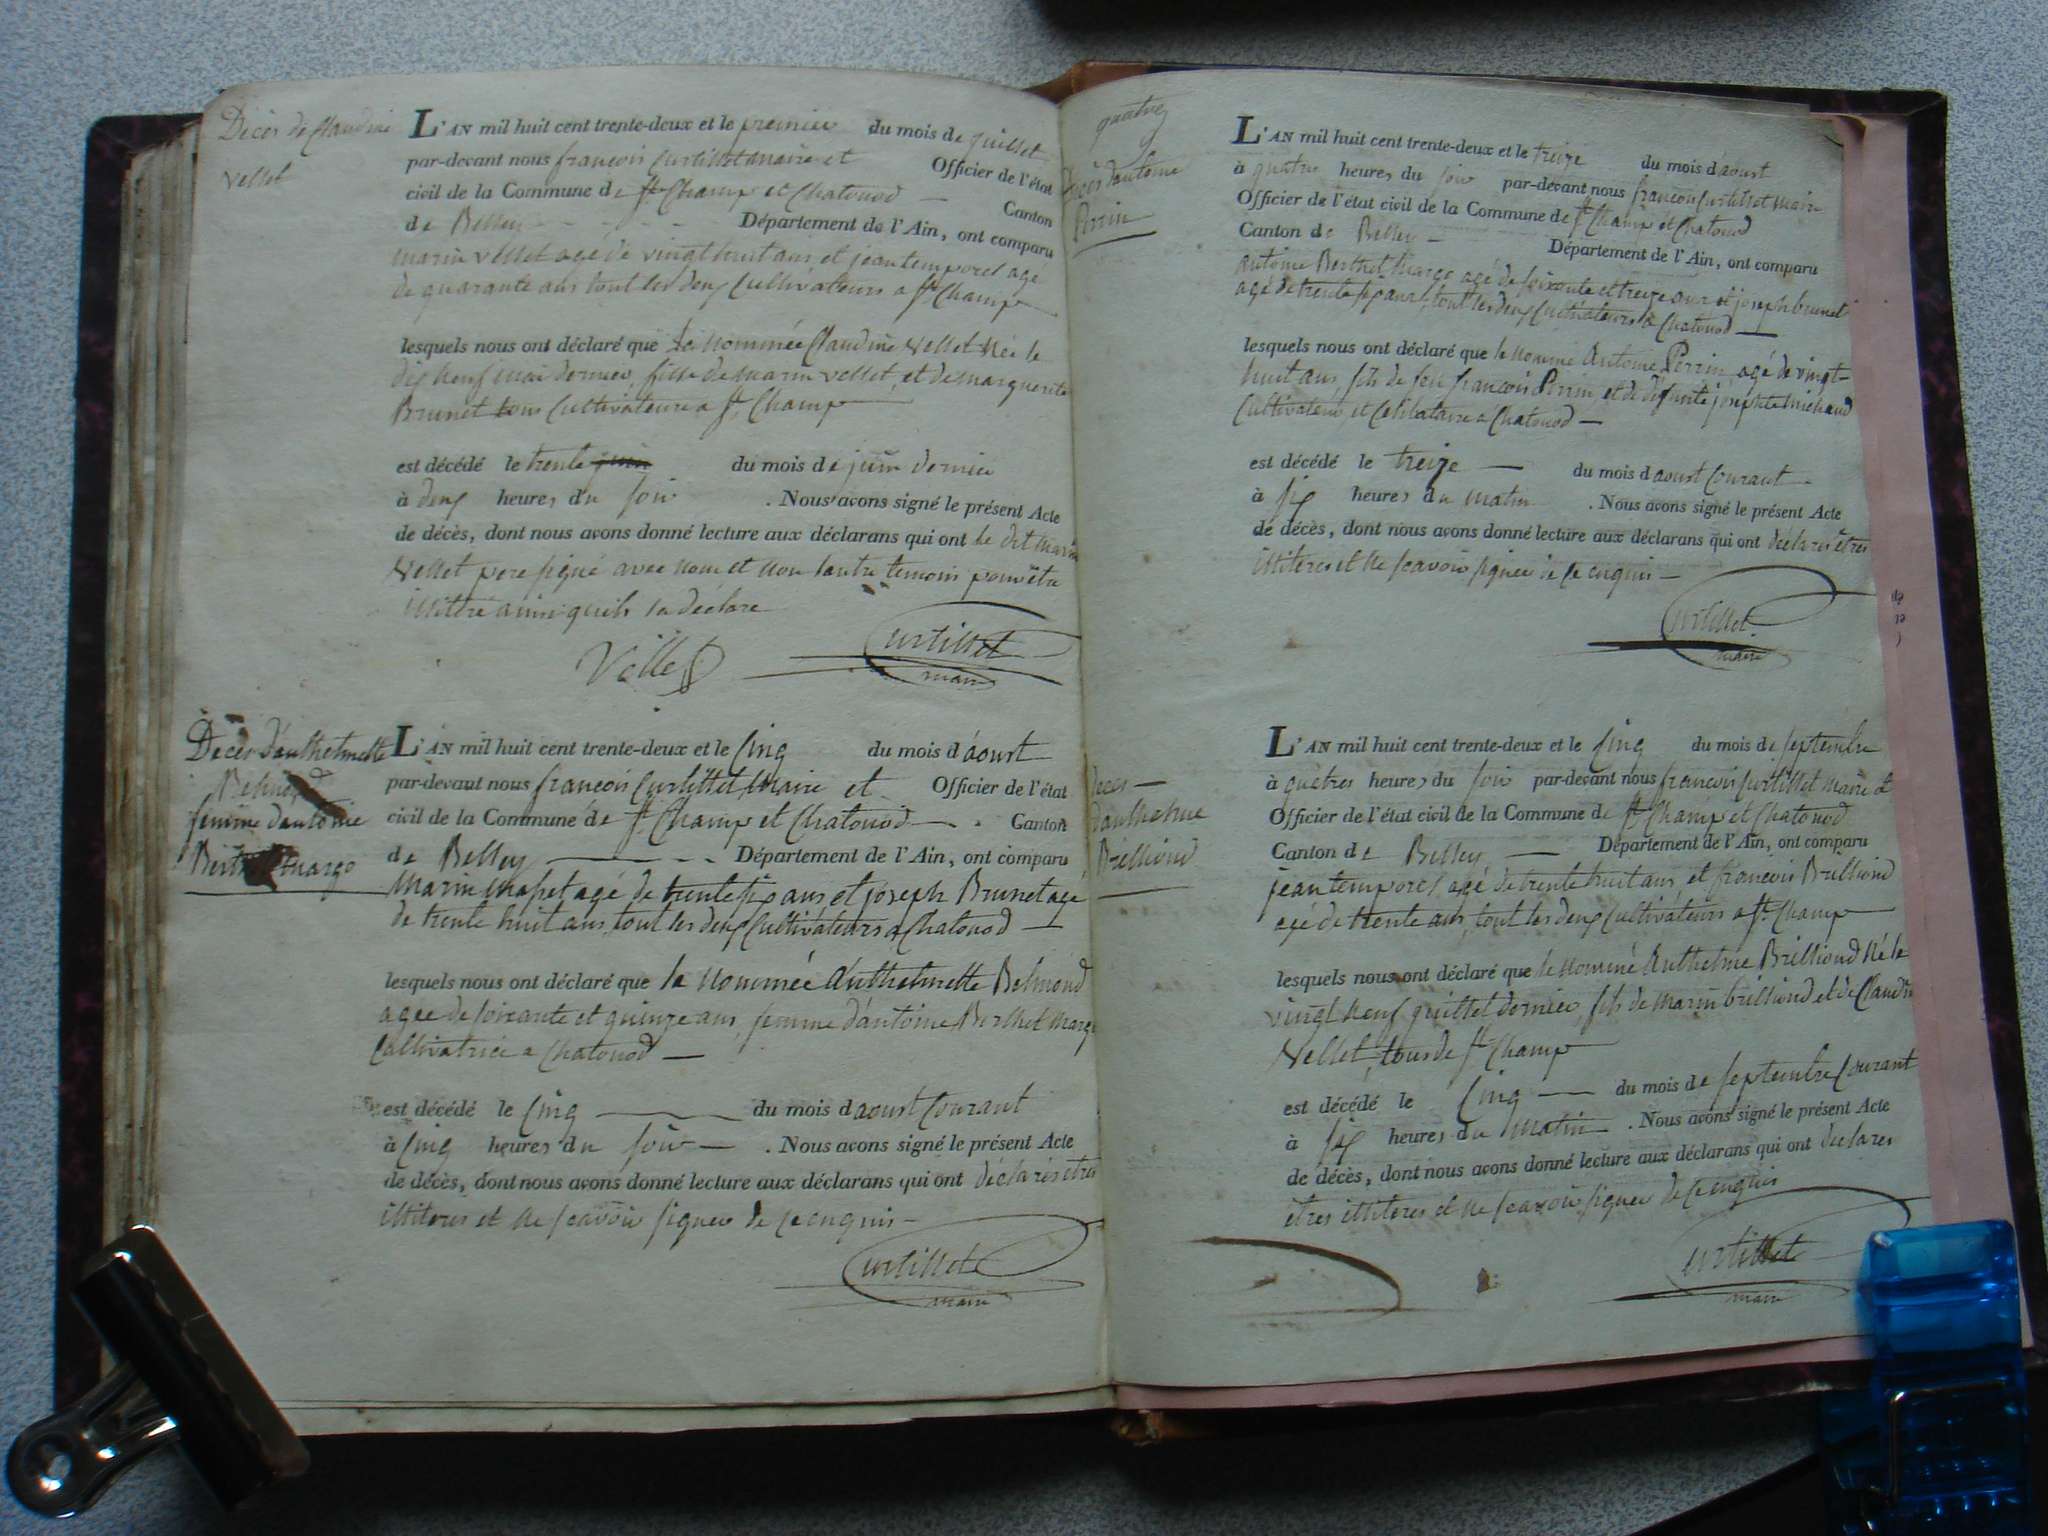 Décès de Claudine
Vellet
L'AN mil huit cent trente-deux et le premier du mois de juillet
par-devant nous françois Curtillet maire et Officier de l'état
civil de la Commune de St. Champ et Chatonod — Canton
de Belley - - - - Département de l'Ain, ont comparu
marin vellet agé de vingt huit ans et jean temporel agé
de quarante ans tout les deux Cultivateurs a St. Champ
lesquels nous ont déclaré que la nommée Claudine Vellet Née le
dix neuf mai dernier, fille de marin vellet, et de marguerite
Brunet tous Cultivateurs a St. Champ
est décédé le trente juin du mois de juin dernier
à deux heures du soir . Nous avons signé le présent Acte
de décès, dont nous avons donné lecture aux déclarans qui ont le dit marin
Vellet pere signé avec nous et non lautre temoin pour être
illitré ainsi quils la déclare
Vellet
Curtillet
maire
Décès d'anthelmette
Belmond
femme d'antoine
Berthet margo
L'AN mil huit cent trente-deux et le Cinq du mois d'aoust
par-devant nous françois Curtillet, Maire et Officier de l'état
civil de la Commune de St. Champ et Chatonod — . Canton
de Belley — - - - Département de l'Ain, ont comparu
Marin Masset agé de trente six ans et joseph Brunet agé
de trente huit ans, tout les deux Cultivateurs a Chatonod —
lesquels nous ont déclaré que la Nommée Anthelmette Belmond
agée de soixante et quinze ans, femme d'antoine Berthet Margo
Cultivatrice a Chatonod —
est décédé le Cinq — du mois d'aoust Courant
à Cinq heures du soir — . Nous avons signé le présent Acte
de décès, dont nous avons donné lecture aux déclarans qui ont déclarés etres
illiteres et Ne scavoir signer de ce enquis —
Curtillet
maire
quatre
Décès d'antoine
Perrin
L'AN mil huit cent trente-deux et le treize du mois d'aoust
à quatre heures du soir par-devant nous françois Curtillet maire
Officier de l'état civil de la Commune de St. Champ et Chatonod
Canton de Belley — Département de l'Ain, ont comparu
antoine Berthet Margo agé de soixante et treize ans et joseph brunet
agé de trente six ans, tout les deux Cultivateurs a Chatonod —
lesquels nous ont déclaré que le nommé Antoine Perrin, agé de vingt-
huit ans, fils de feu françois Perrin, et de défunte josephte Michaud
Cultivateur, et Celibataire a Chatonod —
est décédé le treize — du mois d'aoust Courant
à six heures du matin . Nous avons signé le présent Acte
de décès, dont nous avons donné lecture aux déclarans qui ont déclarés êtres
illiteres et Ne scavoir signer de ce enquis —
Curtillet
maire
Décès —
d'anthelme
Brilliond
L'AN mil huit cent trente-deux et le Cinq du mois de septembre
à quatres heures du soir par-devant nous françois Curtillet maire et
Officier de l'état civil de la Commune de St. Champ et Chatonod
Canton de Belley — Département de l'Ain, ont comparu
jean temporel agé de trente huit ans, et françois Brilliond
agé de trente ans, tout les deux Cultivateurs a St. Champ
lesquels nous ont déclaré que le nommé Anthelme Brilliond Né le
vingt Neuf juillet dernier, fils de marin brilliond et de Claudine
Vellet, tous de St. Champ
est décédé le Cinq — du mois de septembre Courant
à six heures du matin . Nous avons signé le présent Acte
de décès, dont nous avons donné lecture aux déclarans qui ont declarés
etres illiteres et Ne scavoir signer de ce enquis
Curtillet
maire